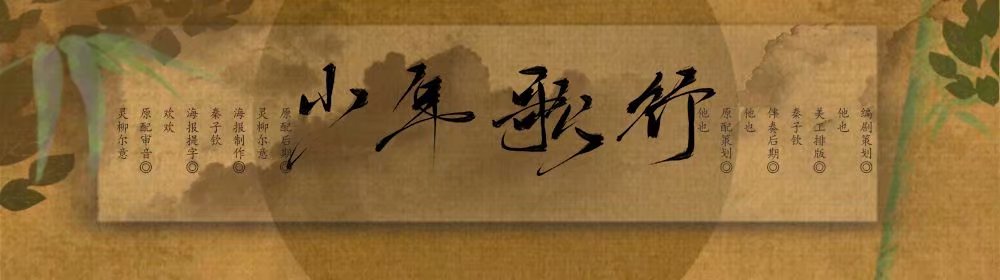 少年歌行
编剧策划◎
他也
美工排版◎
秦子钦
伴奏后期◎
他也
原配策划◎
他也
原配后期◎
灵柳尔意
海报制作◎
秦子钦
海报提字◎
欢欢
原配审音◎
灵柳尔意